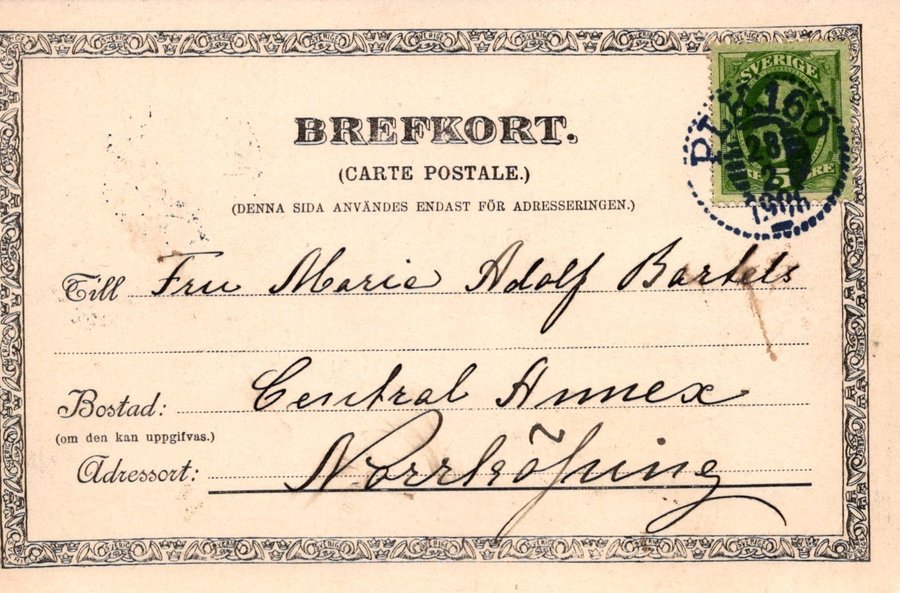 BREFKORT.
(CARTE POSTALE.)
(DENNA SIDA ANVÄNDES ENDAST FÖR ADRESSERINGEN.)
SVERIGE
PLK 160
28
1906
Till Fru Marie Adolf Bartels
Bostad: Central Annex
(om den kan uppgifvas.)
Adressort: Norrköping